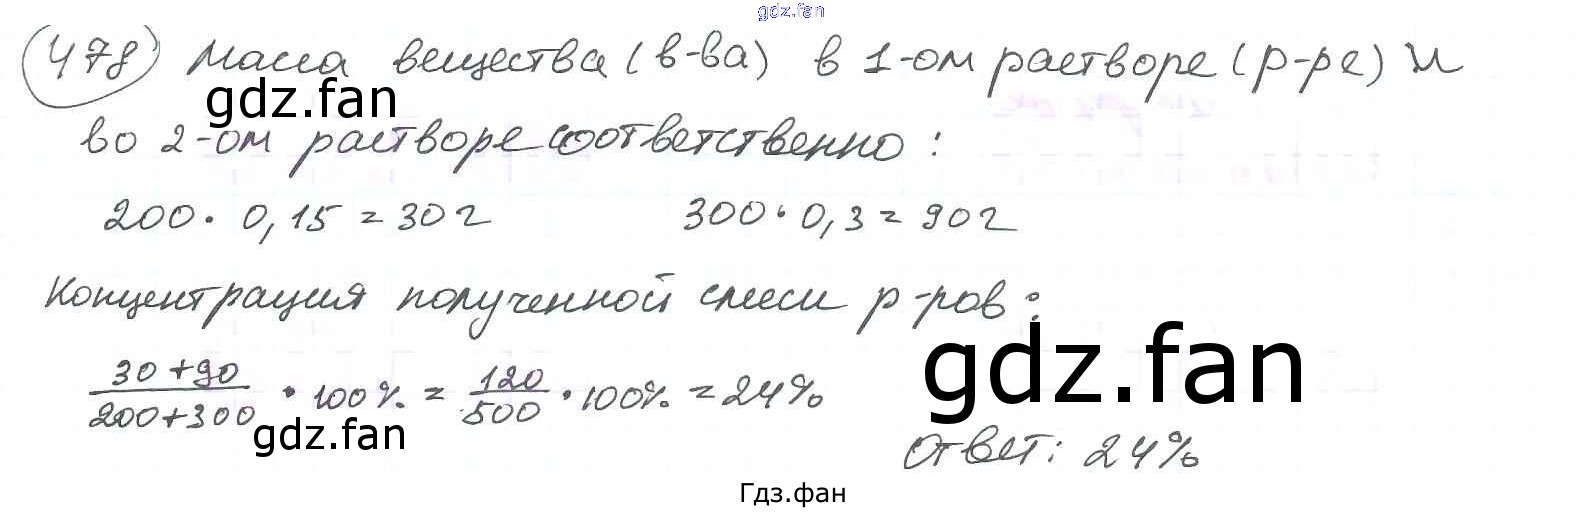 gdz.fan
478) Масса вещества (в-ва) в 1-ом растворе (р-ре) и
gdz.fan
во 2-ом растворе соответственно:
200 · 0,15 = 30 г 300 · 0,3 = 90 г
Концентрация полученной смеси р-ров:
gdz.fan
30+90 / 200+300 · 100% = 120 / 500 · 100% = 24%
gdz.fan
Ответ: 24%
Гдз.фан